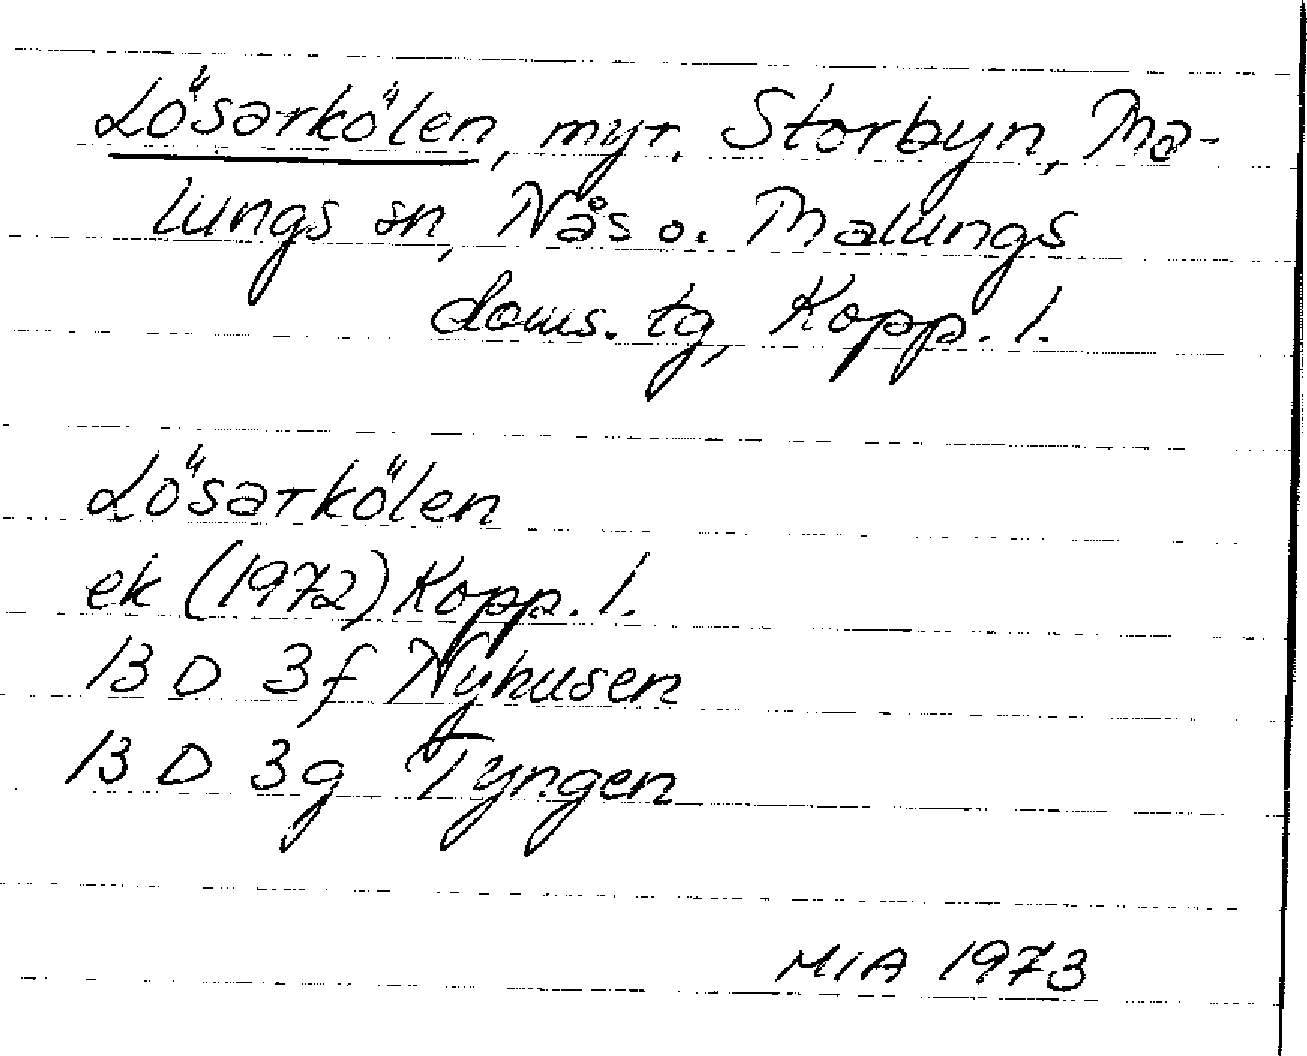 Lösarkölen, myr. Storbyn, Ma-
lungs sn, Nås o. Malungs
doms. tg, Kopp. l.
Lösarkölen
ek (1972) Kopp. l.
13 D 3f Nyhusen
13 D 3g Tyngen
MIA 1973